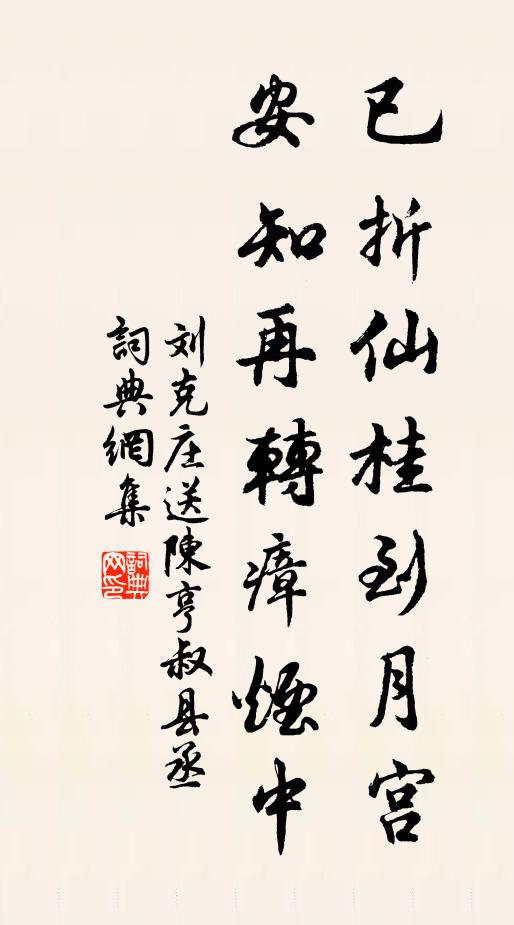 已折仙桂到月宫
安知再轉瘴煙中
刘克庄送陳亨叔县丞
詞典網集
詞典
网印